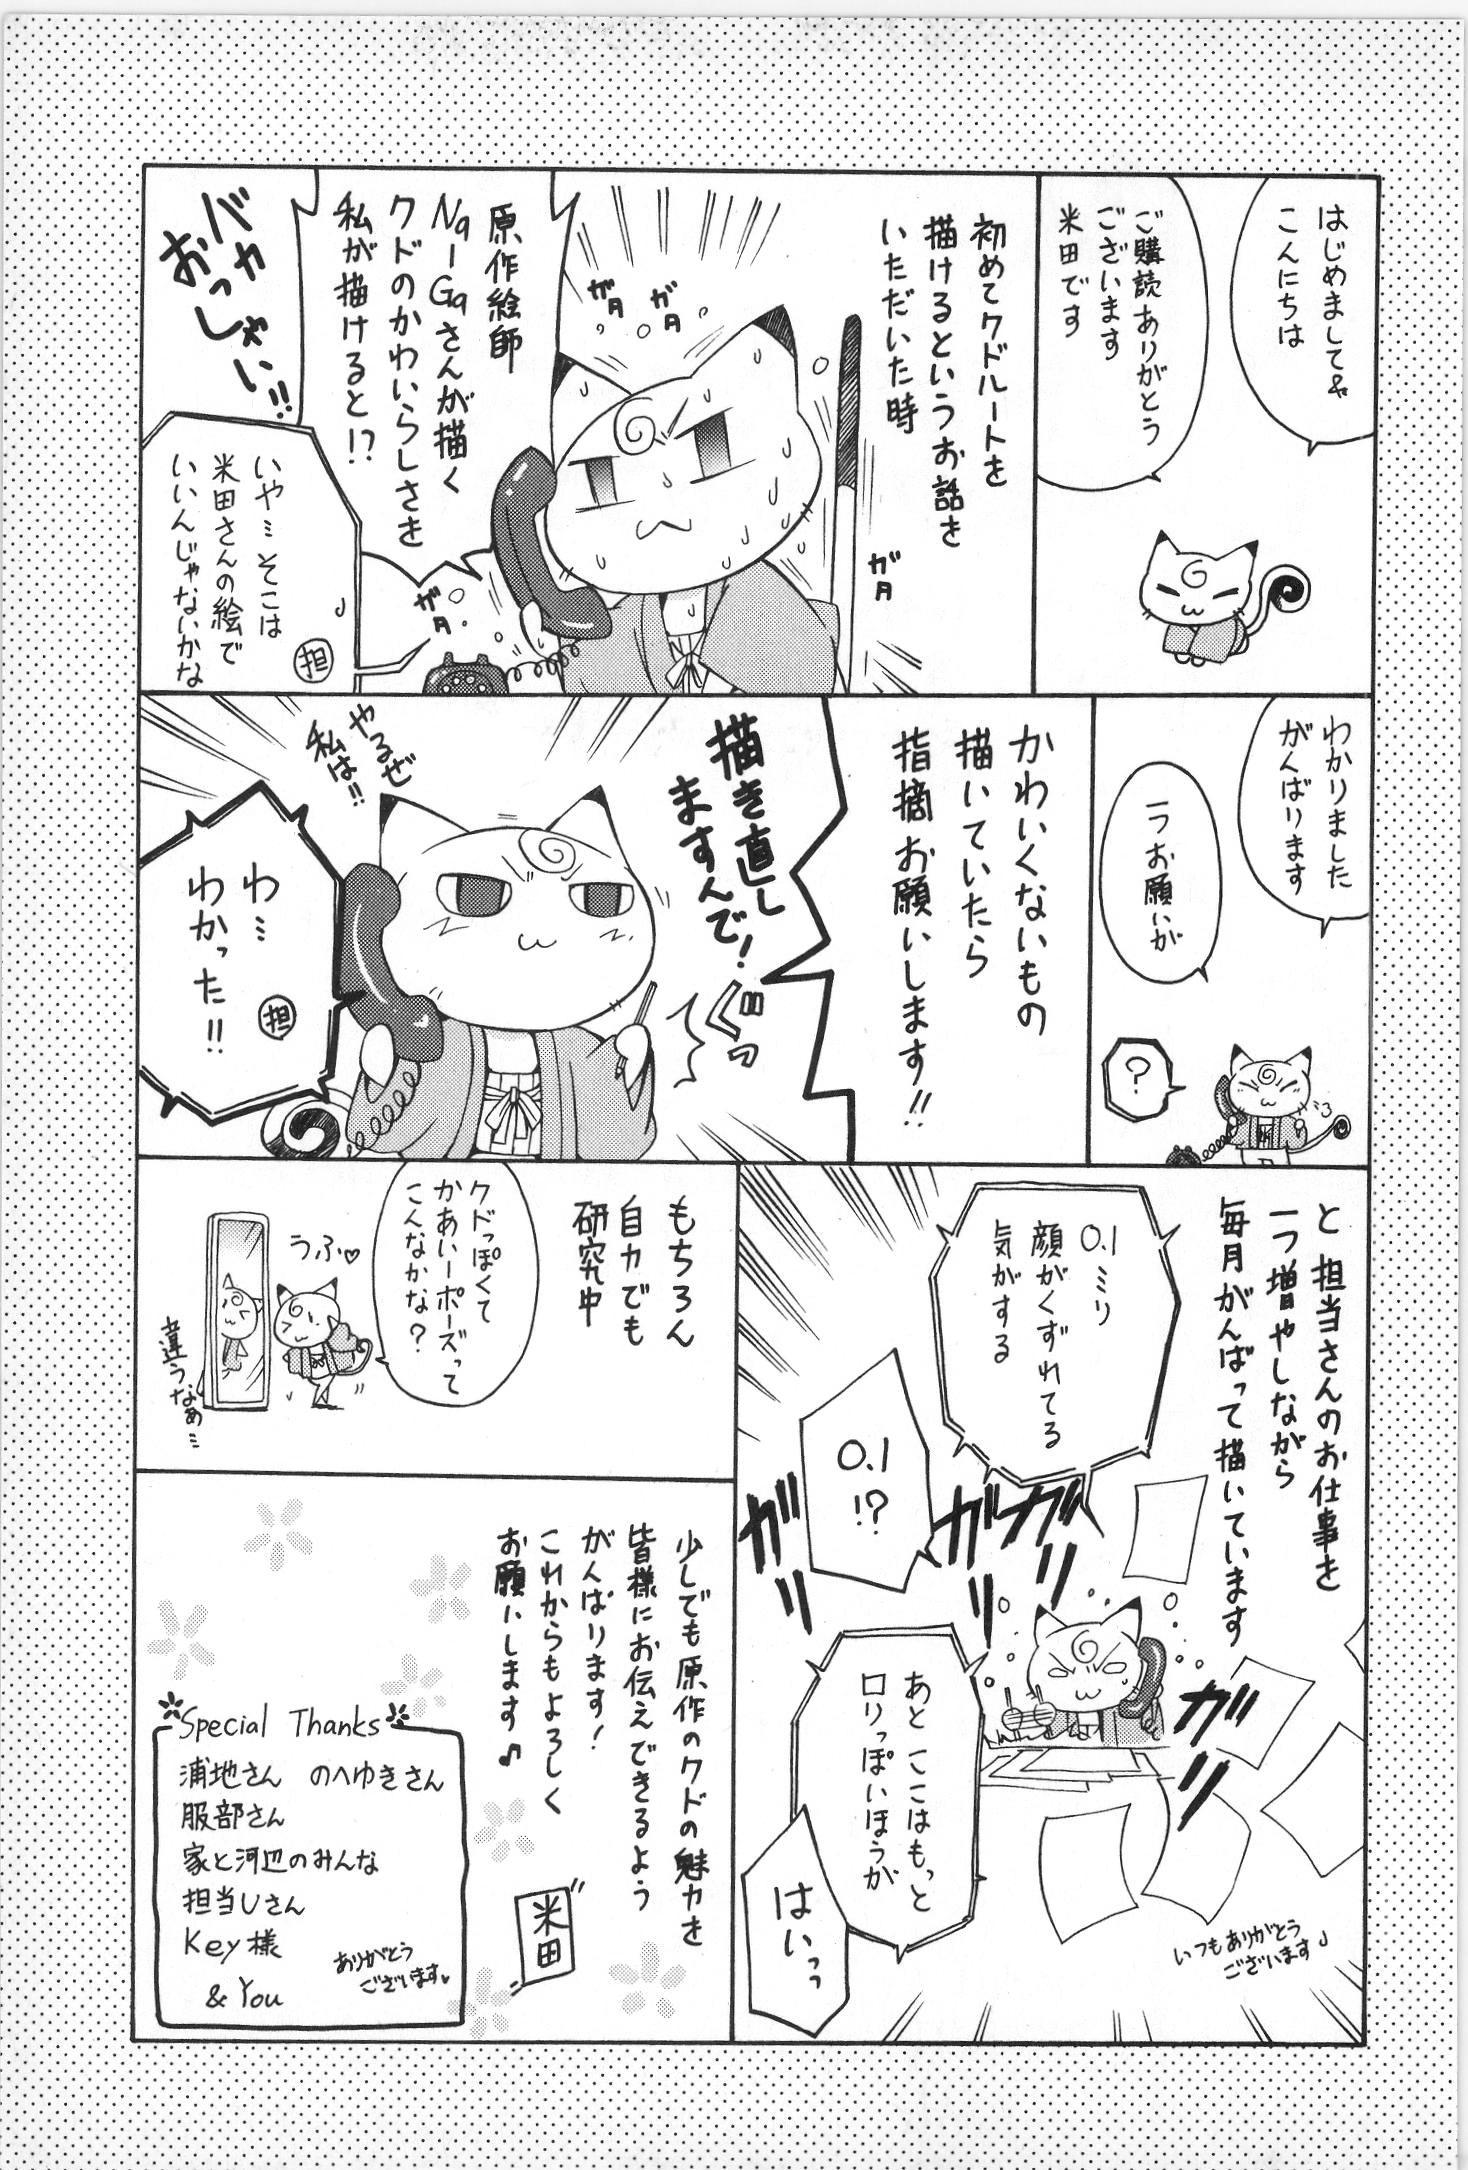 はじめまして&
こんにちは
ご購読ありがとう
ございます
米田です
初めてクドルートを
描けるというお話を
いただいた時
ガタ
ガタ
ガタ
ガタ
原作絵師
Na-Gaさんが描く
クドのかわいらしさを
私が描けると!?
バカ
おっしゃい!!
いや…そこは
米田さんの絵で
いいんじゃないかな
担
わかりました
がんばります
一つお願いが
?
かわいくないもの
描いていたら
指摘お願いします!!
描き直し
ますんで!
ぐっ
やるぜ
私は!!
わ…
わかった!!
担
と担当さんのお仕事を
一つ増やしながら
毎月がんばって描いています
0.1ミリ
顔がくずれてる
気がする
0.1
!?
ガガガガ
ガガ
あとここはもっと
ロリっぽいほうが
はいっっ
いつもありがとう
ございます♪
もちろん
自力でも
研究中
クドっぽくて
かあいーポーズって
こんなかな?
うふ♥
違うなぁ…
少しでも原作のクドの魅力を
皆様にお伝えできるよう
がんばります!
これからもよろしく
お願いします♪
米田
Special Thanks
浦地さん のへゆきさん
服部さん
家と河辺のみんな
担当Uさん
Key様
& You
ありがとう
ございます♥